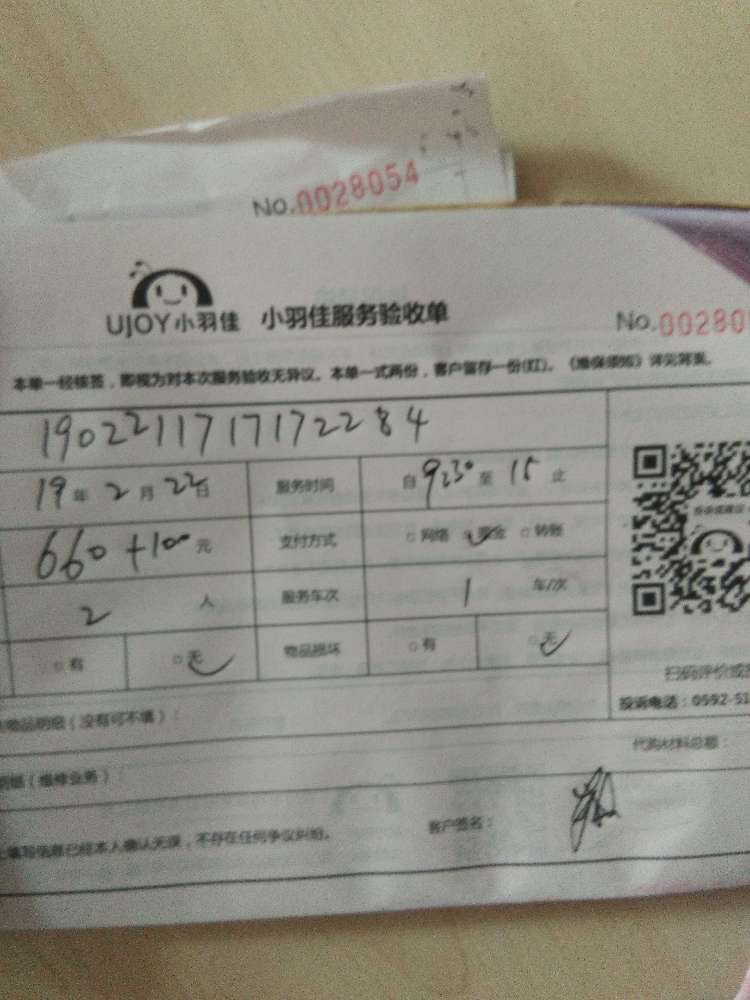 No.0028054
UJOY小羽佳 小羽佳服务验收单
No.00280
本单一经核签，即视为对本次服务验收无异议。本单一式两份，客户留存一份(红)。《维保须知》详见背面。
190221171717172284
19年2月22日 服务时间 自9:30至15止
660+100元 支付方式 □网络 □现金 □转账
2人 服务车次 1车/次
□有 □无 物品损坏 □有 □无
扫码评价或
物品明细（没有可不填）：
投诉电话：0592-51
明细（维修业务）：
代购材料总额：
填写信息已经本人确认无误，不存在任何争议纠纷。
客户签名：